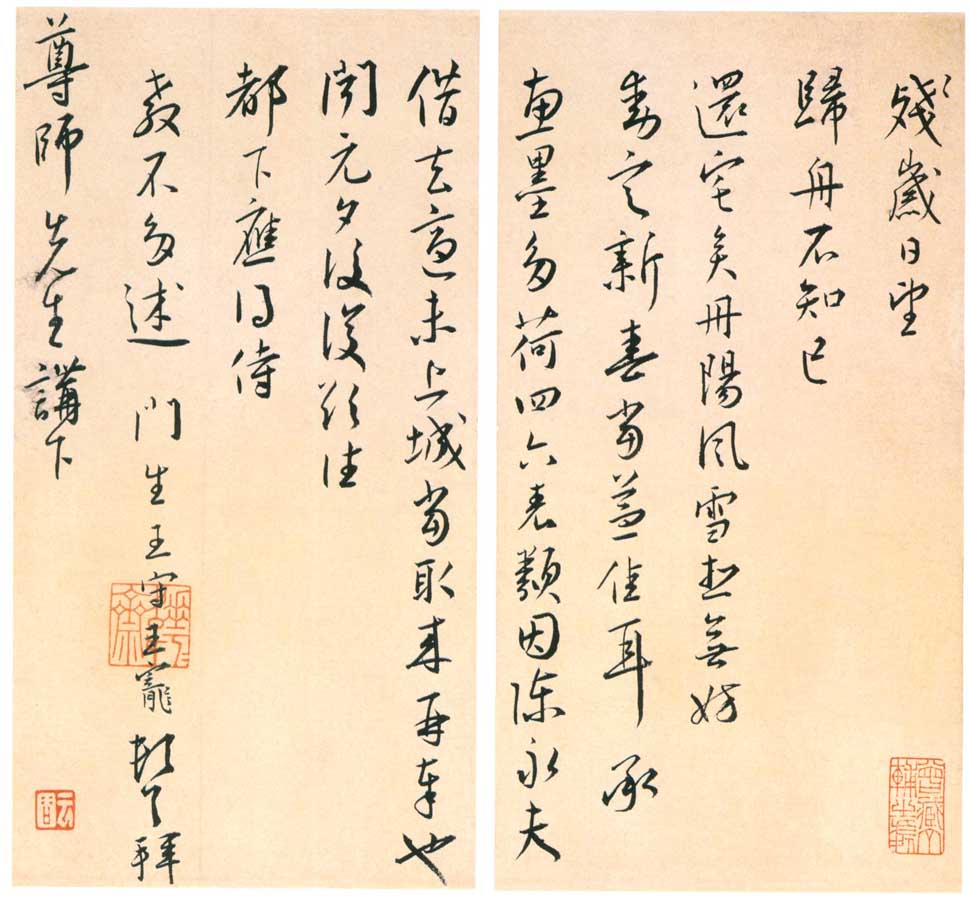 殘歲日望
歸舟不知已
還宅矣丹陽風雪想無妨
動定新春當益佳耳承
惠墨多荷四六表類因陳永夫
借去適未上城當取來再奉也
聞元夕後復欲往
都下應得侍
教不多述 門生王守王寵頓首拜
尊師先生講下